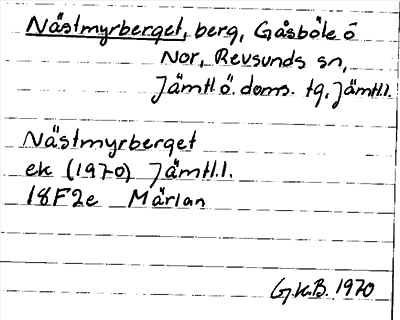 Nästmyrberget, berg, Gåsböle ö
Nor, Revsunds sn,
Jämtl ö. doms. tg, Jämtl.l.
Nästmyrberget
ek (1970) Jämtl.l.
18F2e Märlan
G.K.B. 1970